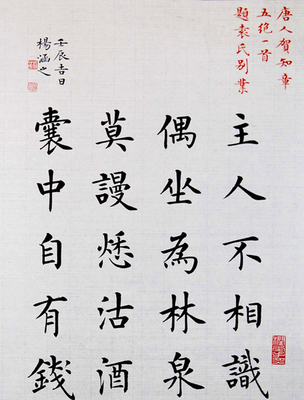 唐人賀知章
五绝一首
題袁氏别業
主人不相識
偶坐為林泉
莫謾愁沽酒
囊中自有錢
壬辰吉日
楊涵之